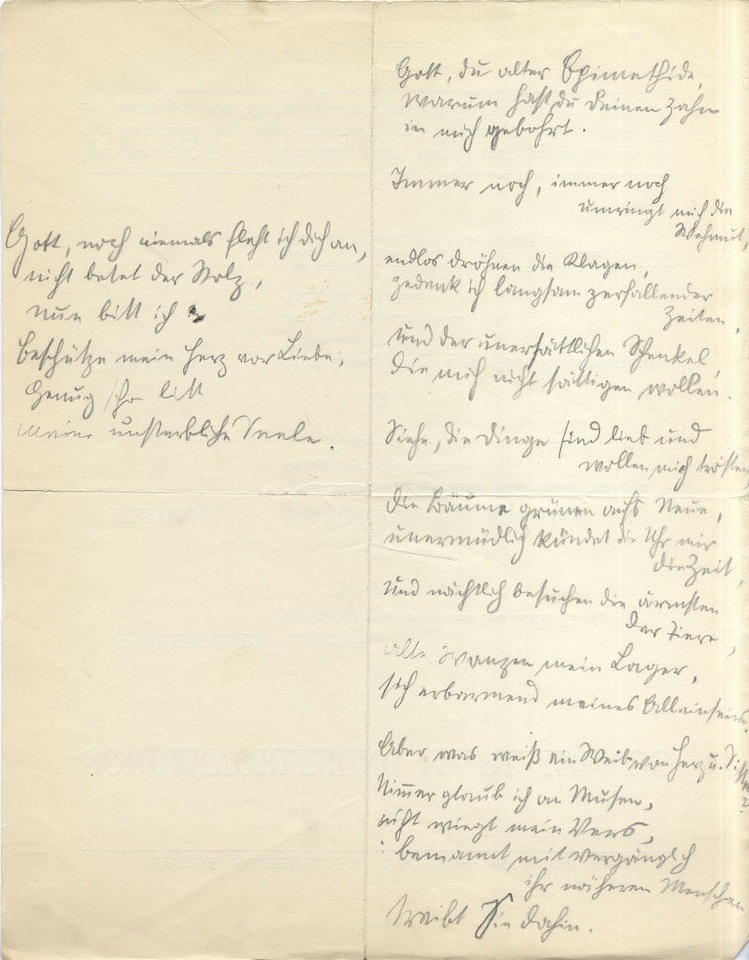 Gott, noch niemals fleht ich dich an,
nicht betet der Stolz,
nun bitt ich
beschütze mein Herz vor Liebe,
Genug schon litt
meine unsterbliche Seele.
Gott, du alter Epimethide,
warum hast du deinen Zahn
in mich gebohrt.
Immer noch, immer noch
umringt mich die
Wehmut,
endlos dröhnen die Klagen,
gedenk ich langsam zerfallender
Zeiten,
und der unersättlichen Schenkel
die mich nicht sättigen wollen.
Siehe, die Dinge sind lieb und
wollen mich trösten
die Bäume grünen aufs Neue,
unermüdlich kündet die Uhr mir
die Zeit,
und nächtlich besuchen die ärmsten
der Tiere,
alte Wanzen mein Lager,
sich erbarmend meines Alleinseins.
Aber was weiß ein Weib von Herz u.
Nimmer glaub ich an Musen,
nicht wiegt mein Vers,
bemannt mit
ihr näheren Menschen
treibt Sie dahin.